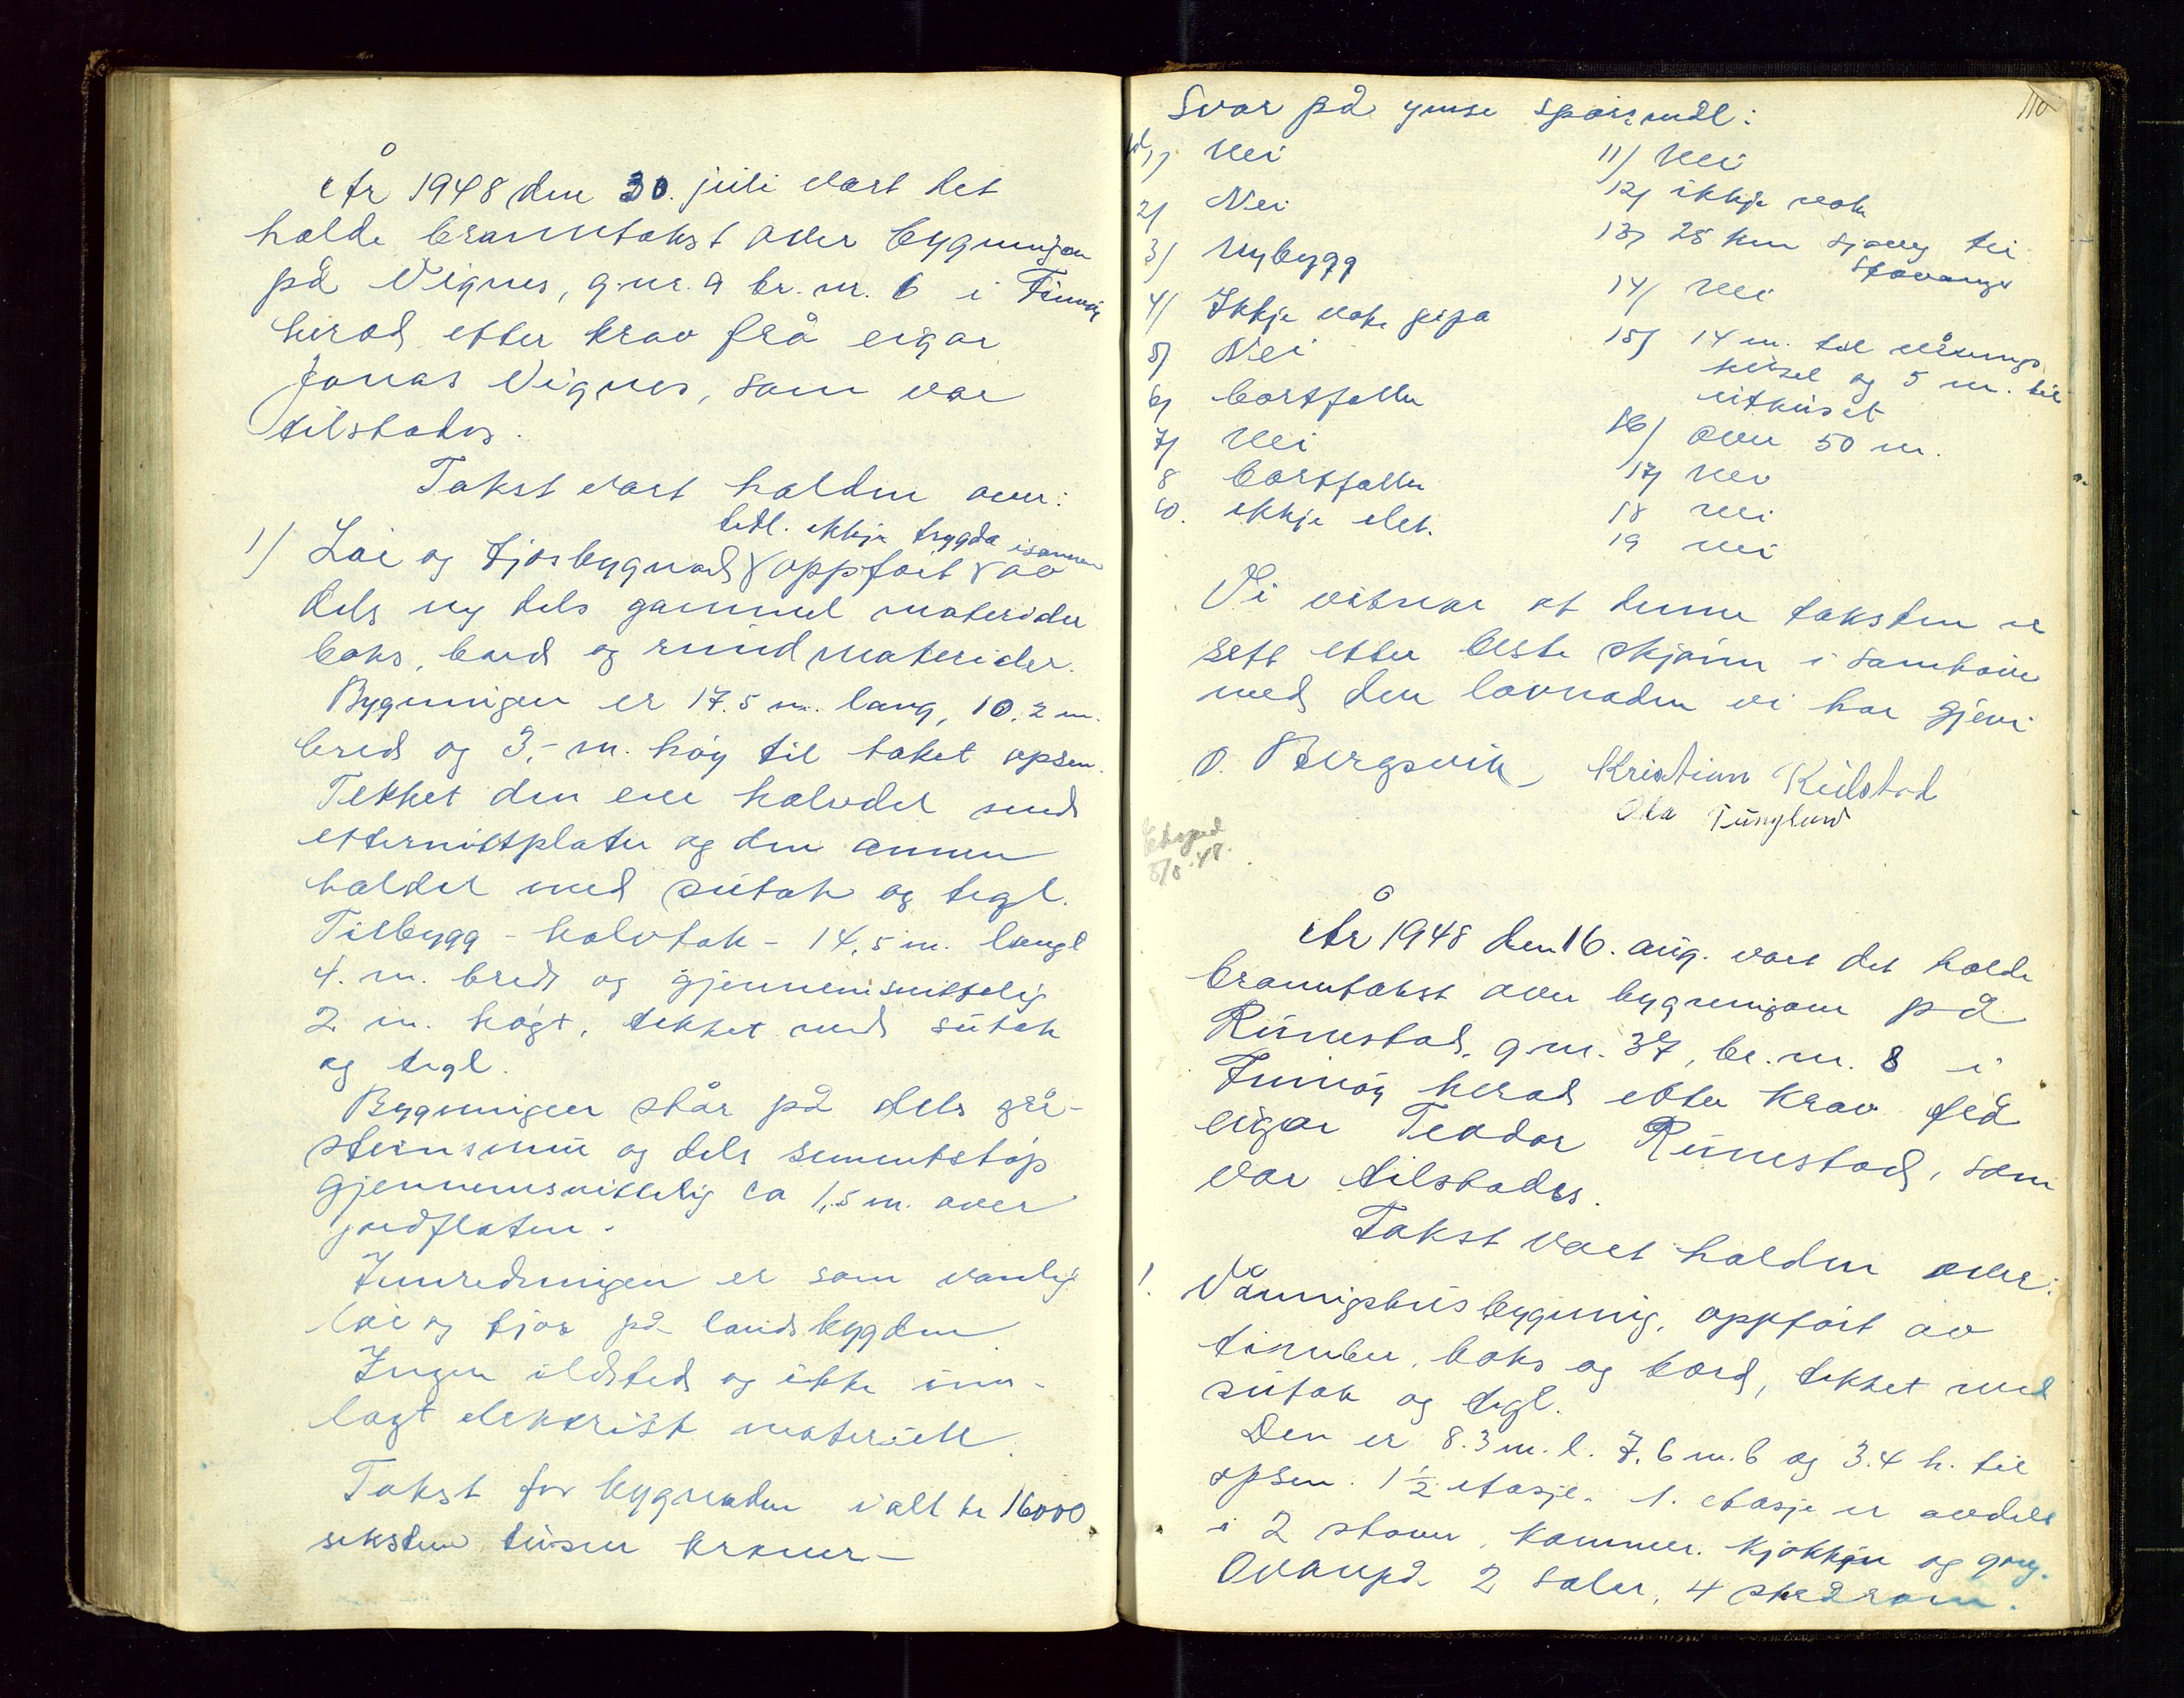 År 1948 den 30. juli vart det
halde branntakst over bygningen
på Vignes, g.nr. 9 br.nr. 6 i Finnøy
herad etter krav frå eigar
Jonas Vignes, som var
tilstades.
Takst vart halden over:
tidl. ikkje trygda isammen
1) Løe og fjosbygnad oppført av
dels ny dels gammel materialer
boks, bord og rundmaterialer.
Bygningen er 17.5 m. lang, 10.2 m.
breid og 3,- m. høg til taket opsen.
Tekket den eine halvdel med
etternittplater og den annen
halvdel med sutak og tegl.
Tilbygg - halvtak - 14,5 m. langt
4. m. breit og gjennemsnittelig
2 m. høgt, tekket med sutak
og tegl.
Bygningen står på dels grå-
steinsmur og dels sementstøp
gjennemsnittelig ca 1,5 m. over
jordflaten.
Innredningen er som vanlig
løe og fjos på landsbygden
Ingen ildsted og ikke inn-
lagt elektrisk materiell.
Takst for bygnaden ialt kr 16000
seksten tusen kroner-
110
Svar på ymse spørsmål:
1) Nei
2) Nei
3) Nybygg
4) Ikkje noke pipa
5) Nei
6) bortfaller
7) Nei
8 bortfaller
10. ikkje elek.
11) Nei
12) ikkje noke
13) 28 km sjøveg til
Stavanger
14) Nei
15) 14 m. til vånings
huset og 5 m. til
uthuset
16) over 50 m.
17) Nei
18 Nei
19 Nei
Vi vitnar at denne taksten er
sett etter beste skjønn i samhøve
med den lovnaden vi har gjeve
O. Bergsvik Kristian Kulstad
Ola Tunglund
Eksped
8/8.48.
År 1948 den 16. aug. vart det halde
branntakst over bygningane på
Runestad, g.nr. 37, br.nr. 8 i
Finnøy herad etter krav frå
eigar Teodor Runestad, som
var tilstades.
Takst vart halden over:
1. Våningshusbygning, oppført av
timber, boks og bord, tekket med
sutak og tegl.
Den er 8.3 m. l. 7.6 m. b og 3.4 h. til
opsen. 1 ½ etasje. 1. etasje er avdelt
i 2 stover, kammer. kjøkken og gang.
Ovanpå 2 saler, 4 skrårom.